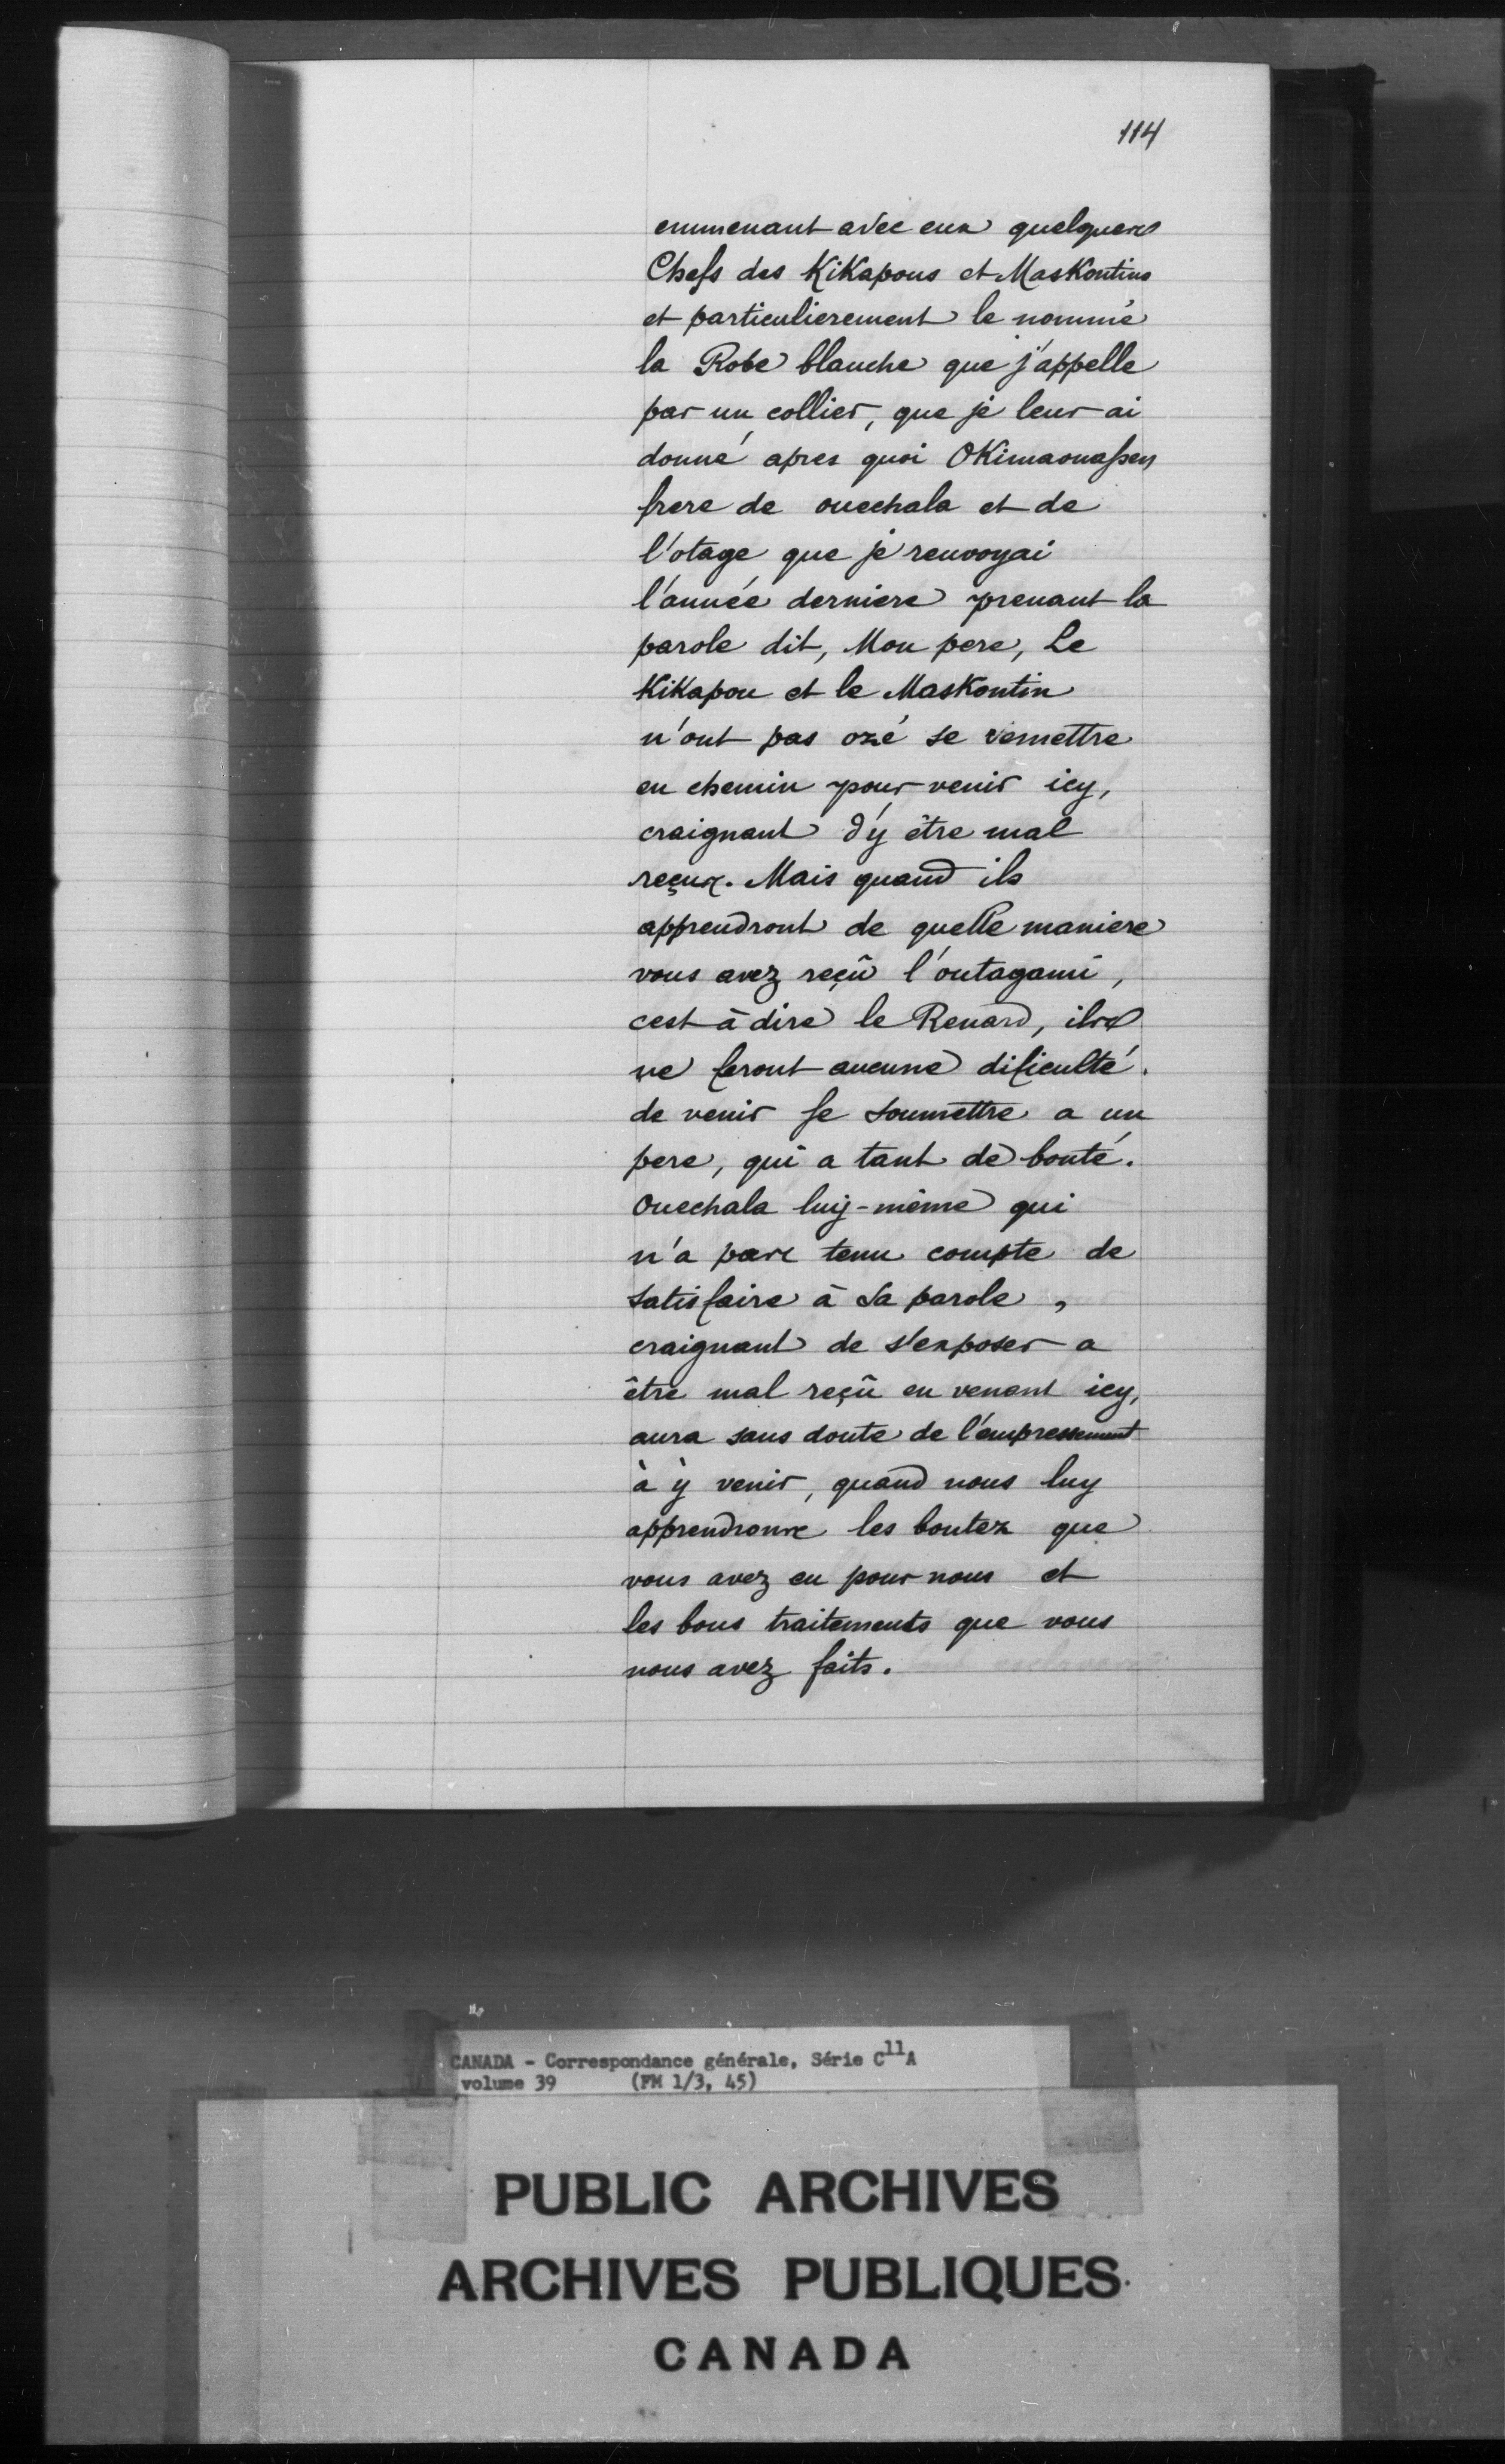 114
emmenant avec eux quelques
Chefs des Kikapous et Maskoutins
et particulierement le nommé
la Robe blanche que j'appelle
par un collier, que je leur ai
donné apres quoi Okimaouassen
frere de ouechala et de
l'otage que je renvoyai
l'année derniere prenant la
parole dit, Mon pere, Le
Kikapou et le Maskoutin
n'ont pas ozé se remettre
en chemin pour venir icy,
craignant d'y être mal
reçus. Mais quand ils
apprendront de quelle maniere
vous avez reçû l'outagami,
cest à dire le Renard, ils
ne feront aucune dificulté.
de venir se soumettre a un
pere, qui a tant de bonté.
Ouechala luy-même qui
n'a pas tenu compte de
satisfaire à sa parole,
craignant de s'exposer a
être mal reçû en venant icy,
aura sans doute de l'empressement
à y venir, quand nous luy
apprendrons les boutez que
vous avez eu pour nous et
les bons traitements que vous
nous avez faits.
CANADA - Correspondance générale, Série C11A
volume 39 (FM 1/3, 45)
PUBLIC ARCHIVES
ARCHIVES PUBLIQUES
CANADA